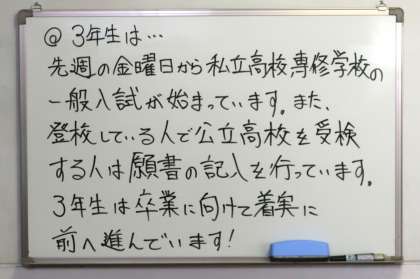 @ 3年生は…
先週の金曜日から私立高校専修学校の
一般入試が始まっています。また、
登校している人で公立高校を受検
する人は願書の記入を行っています。
3年生は卒業に向けて着実に
前へ進んでいます!